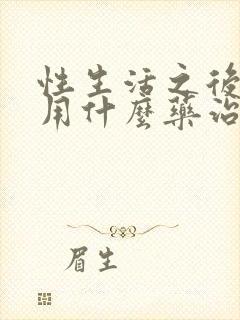 性生活之後
用什麼藥治
眉生